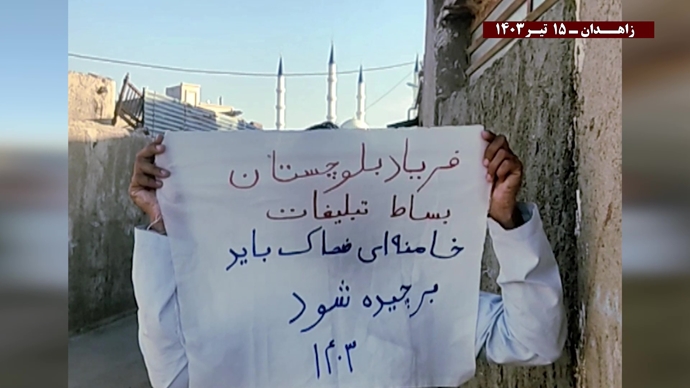 زاهـدان ـ ۱۵ تیـر۱۴۰۳
فریاد بلوچستان
بساط تبلیغات
خامنه‌ای ضحاک باید
برچیده شود
۱۴۰۳